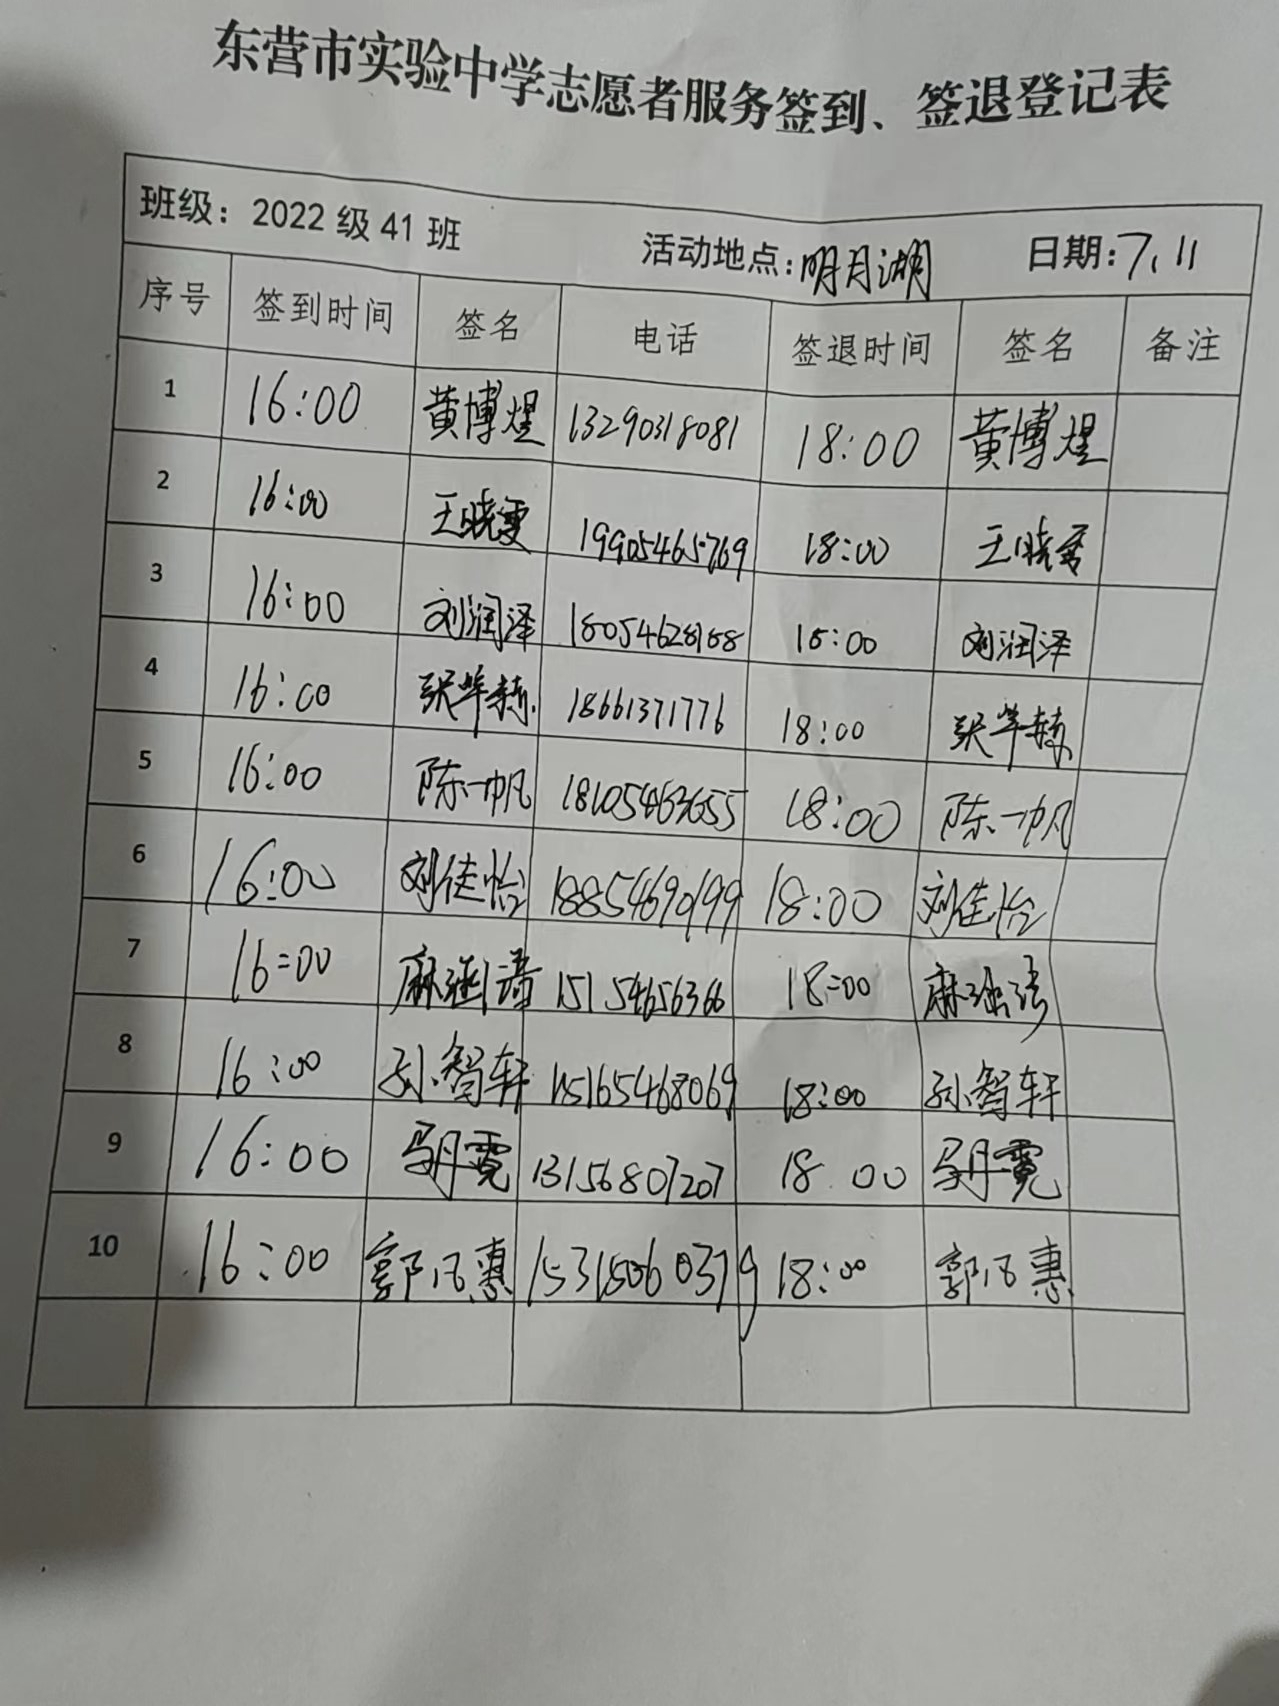 东营市实验中学志愿者服务签到、签退登记表
班级：2022 级 41 班 活动地点：明月湖 日期：7.11
序号 签到时间 签名 电话 签退时间 签名 备注
1 16:00 黄博煜 13290318081 18:00 黄博煜
2 16:00 王晓雯 19905465769 18:00 王晓雯
3 16:00 刘润泽 18054628188 18:00 刘润泽
4 16:00 张华赫 18661371776 18:00 张华赫
5 16:00 陈一帆 18105463655 18:00 陈一帆
6 16:00 刘佳怡 18854690199 18:00 刘佳怡
7 16:00 麻涵清 15154656366 18:00 麻涵清
8 16:00 孙智轩 15165468069 18:00 孙智轩
9 16:00 马月霓 13156807207 18 00 马月霓
10 16:00 郭凡惠 15315060379 18:00 郭凡惠